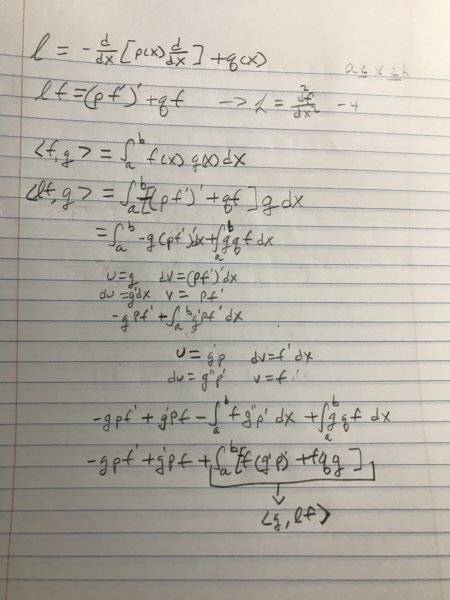 l = - d/dx [p(x) d/dx] + q(x)
a ≤ x ≤ b
lf = (pf')' + qf → L = d²f/dx² - 4
<f,g> = ∫_a^b f(x) g(x) dx
<lf,g> = ∫_a^b [-(pf')' + qf] g dx
= ∫_a^b -g(pf')' dx + ∫_a^b gqf dx
u = g dv = (pf')' dx
du = g'dx v = pf'
-gpf' + ∫_a^b g'pf' dx
u = g'p dv = f' dx
du = g''p' v = f
-gpf' + g'pf - ∫_a^b f g''p' dx + ∫_a^b gqf dx
-gpf' + g'pf + ∫_a^b [f(g'p)' + fqg]
<g, lf>